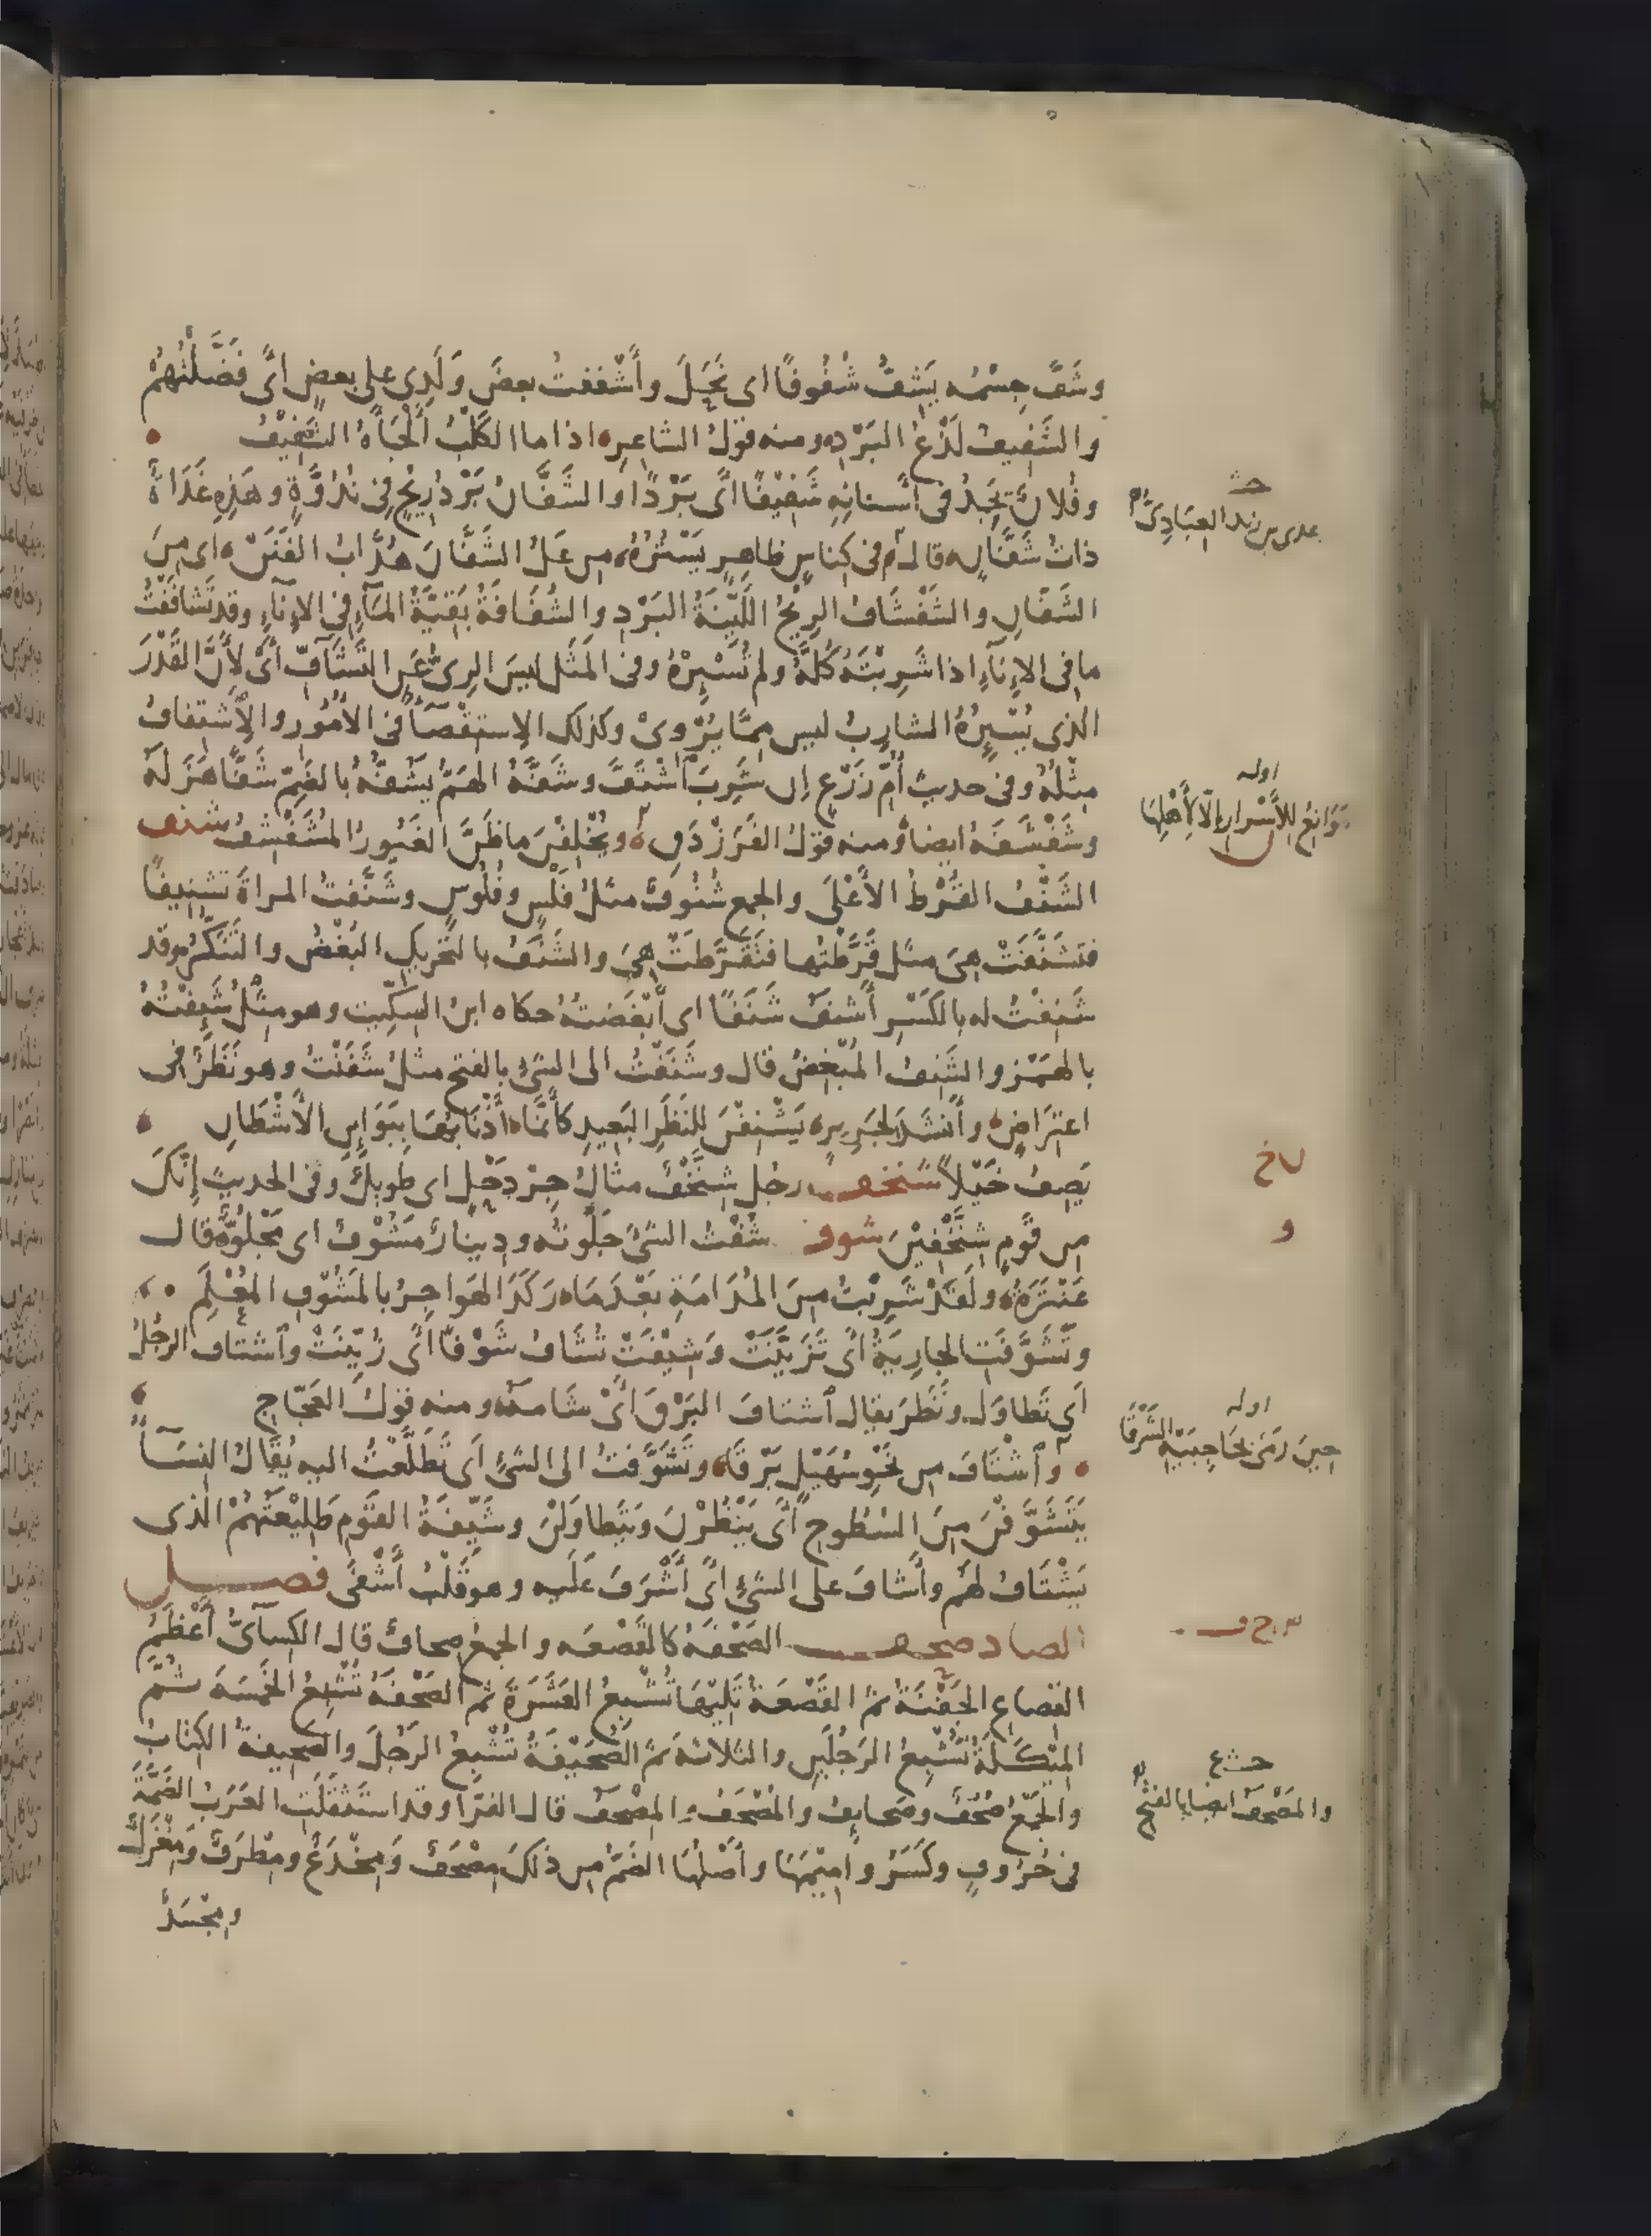 وشَفَّ جِسْمُه يَشِفُّ شُفُوفًا اى نَحَلَ وأَشْفَفتُ بعضَ وَلَدِى على بعضٍ اىْ فَضَّلْتُهُمْ
والشَّفِيفُ لَذْعُ البَرْدِ ومنه قولُ الشاعِرِ اذا ما الكَلْبُ أَلْجَأَهُ الشَّفِيْفُ
وفُلانٌ يَجِدُ فى أسنانِهِ شَفِيْفًا اىْ بَرْدًا والشَّفَّانُ بَرْدُ رِيْحٍ فِى نُدُوَّةٍ وهَذِهِ غَدَاةٌ
ذاتُ شَفَّانٍ قال فى كِناسٍ ظاهِرٍ يَسْتُرُهُ من عَلُ الشَّفَّانَ هُدَّابُ الفَنَنْ اى مِنَ
الشَفَّانِ والشَفْشَافُ الرِيْحُ اللَّيِّنَةُ البَرْدِ والشُفَافَةُ بَقِيَّةُ المَآءِ فِى الاِنآءِ وقد تَشافَفْتُ
ما فى الاِنآءِ اذا شَرِبْتَهُ كُلَّهُ ولم تُسْئِرْهُ وفى المَثَلِ ليسَ الرِىُّ عَنِ التَّشَافِّ اىْ لِأَنَّ القَدْرَ
الذى يُسْئِرُهُ الشارِبُ ليس مِمَّا يُرْوِىْ وكذلك الاِستِقْصَآءُ فى الأُمُورِ والاِشْتِفافُ
مِثْلُهُ وفى حديثِ أُمِّ زَرْعٍ اِن شَرِبَ آشْتَفَّ وشَفَّهُ الهَمُّ يَشُفُّهُ بالضَمِّ شَفًّا هَزَلَهُ
وشَفْشَفَهُ ايضا ومنه قولُ الفَرَزْدَقِ ويُخْلِفْنَ ما ظَنَّ الغَيُورُ المُشَفْشِفُ شنف
الشَنْفُ القُرْطُ الأَعْلَى والجمع شُنُوفٌ مثلُ فَلْسٍ وفُلُوسٍ وشَنَّفتُ المراةَ تشنِيفًا
فتَشَنَّفَتْ هِىَ مثل قَرَّطْتُها فتَقَرَّطَتْ هِىَ والشَنَفُ بالتَحْرِيكِ البُغْضُ والتَنَكُّرُ وقد
شَنِفْتُ له بالكَسْرِ أَشْنَفُ شَنَفًا اى أَبْغَضتُهُ حكاه ابنُ السِكِّيت وهو مِثْلُ شَئِفْتُهُ
بالهَمْزِ والشَنِفُ المُبْغِضُ قال وشَنَفْتُ الى الشئِ بالفتح مثلُ شَفَنْتُ وهو نَظَرٌ فى
اعتِرَاضٍ وأَنشَدَ لِجَرِيرٍ يَشْنِفْنَ لِلنَظَرِ البَعِيدِ كأَنَّمَا إِرْنَانُهَا بِبَوَائِنِ الأَشْطَانِ
يَصِفُ خَيْلًا شنخف رجل شِنَّخْفٌ مثالُ جِرْدَحْلٍ اى طويلٌ وفى الحديثِ إِنَّكَ
من قَومٍ شِنَّخْفِيْنَ شوف شُفْتُ الشئَ جَلَوتُه ودِينارٌ مَشُوْفٌ اى مَجْلُوٌّ قال
عَنْتَرَةُ ولَقَدْ شَرِبْتُ مِنَ المُدَامَةِ بَعْدَ مَا رَكَدَ الهَواجِرُ بالمَشُوْفِ المُعْلَمِ
وتَشَوَّفَتِ الجارِيَةُ اىْ تَزَيَّنَتْ وَشِيْفَتْ تُشَافُ شَوْفًا اىْ زُيِّنَتْ وآشتافَ الرجُلُ
اى تَطاوَلَ ونَظَرَ يقال آشتافَ البَرْقَ اىْ شَامَهُ ومنه قولُ العَجّاجِ
وآشْتَافَ مِن نَحْوِ سُهَيْلٍ بَرْقَا وتَشَوَّفتُ الى الشئِ اى تَطَلَّعْتُ اليه يُقالُ النِسَآءُ
يَتَشَوَّفْنَ مِنَ السُطُوحِ اىْ يَنْظُرْنَ ويَتَطاوَلْنَ وشَيِّفَةُ القَومِ طَلِيْعَتُهُمْ الذى
يَشْتَافُ لهم وأَشافَ على الشئِ اىْ أَشْرَفَ عَلَيه وهو قَلْبُ أَشْفَى فصل
الصاد صحف الصَحْفَةُ كالقَصْعَه والجمعُ صِحافٌ قال الكِسآىُّ أَعْظَمُ
القِصاعِ الجَفْنَةُ ثمّ القَصْعَةُ تَلِيْهَا تُشْبِعُ العَشَرَةَ ثم الصَحْفَةُ تُشْبِعُ الخَمْسَةَ ثمَّ
المِئْكَلَةُ تُشْبِعُ الرَجُلَينِ والثلاثةَ ثمّ الصُحَيْفَةُ تُشْبِعُ الرَجُلَ والصَحِيفةُ الكِتابُ
والجَمْعُ صُحُفٌ وصَحايِفُ والمُصْحَفُ والمِصْحَفُ قال الفَرّآ وقد استَثقَلَتِ العَرَبُ الضَمَّةَ
فى حُرُوفٍ وكَسَرُوا مِيْمَهَا وأَصْلُهَا الضَمُّ من ذلكَ مِصْحَفٌ وَمِخْدَعٌ ومِطْرَفٌ وَمِغْزَلٌ
ومِجْسَدٌ
حث
عدى بن زيد العِبَادِىّ
اوله
مَوَانِعُ لِلأَسْرارِ اِلّا لِأَهْلِهَا
اوله
حِينَ رَمَى بِحَاجِبَيْهِ الشَّرْقَا
والمَصْحَفُ ايضا بالفتح